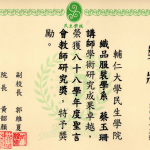 民生學院
輔仁大學民生學院
織品服裝學系 蔡玉珊
講師學術研究成果卓越，
榮獲八十八學年度聖言
會教師研究獎，特予獎
勵。
副校長 郭維夏
院長 黃韶顏